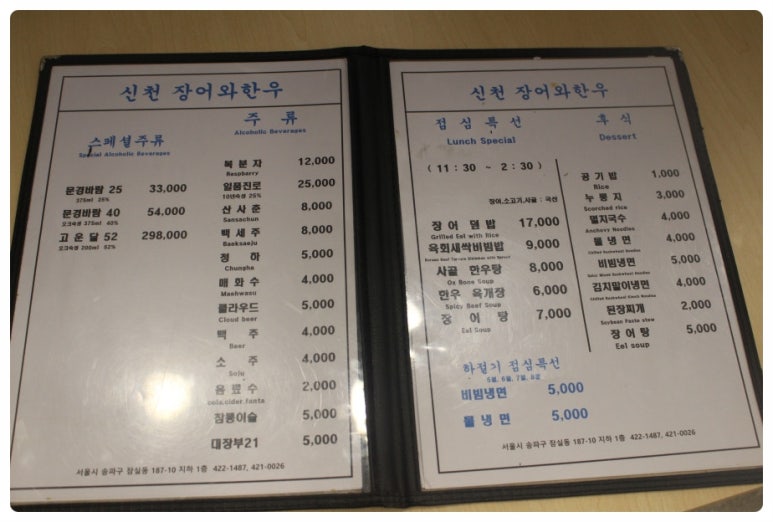 신천 장어와한우
스페셜주류
Special Alcoholic Beverages
문경바람 25 33,000
375ml 25%
문경바람 40 54,000
오크숙성 375ml 40%
고운달 52 298,000
오크숙성 200ml 52%
주 류
Alcoholic Beverages
복 분 자 12,000
Raspbarry
일품진로 25,000
10년숙성 25%
산 사 춘 8,000
Sansachun
백 세 주 8,000
Baeksaeju
청 하 5,000
Chunpha
매 화 수 4,000
Maehwasu
클라우드 5,000
Cloud beer
맥 주 4,000
Beer
소 주 4,000
Soju
음 료 수 2,000
cola.cider.fanta
참통이슬 5,000
대장부21 5,000
서울시 송파구 잠실동 187-10 지하 1층 422-1487, 421-0026
신천 장어와한우
점심특선
Lunch Special
( 11 : 30 ~ 2 : 30 )
장어,소고기,사골 : 국산
장 어 덮 밥 17,000
Grilled Eel with Rice
육회새싹비빔밥 9,000
사골 한우탕 8,000
Ox Bone Soup
한우 육개장 6,000
Spicy Beef Soup
장 어 탕 7,000
Eel Soup
하절기 점심특선
5월, 6월, 7월, 8월
비빔냉면 5,000
물 냉 면 5,000
후 식
Dessert
공 기 밥 1,000
Rice
누 룽 지 3,000
Scorched rice
멸치국수 4,000
Anchovy Noodles
물 냉 면 4,000
Chilled Buckwheat Noodles
비빔냉면 5,000
김치말이냉면 4,000
된장찌개 2,000
Soybean Paste stew
장 어 탕 5,000
Eel soup
서울시 송파구 잠실동 187-10 지하 1층 422-1487, 421-0026